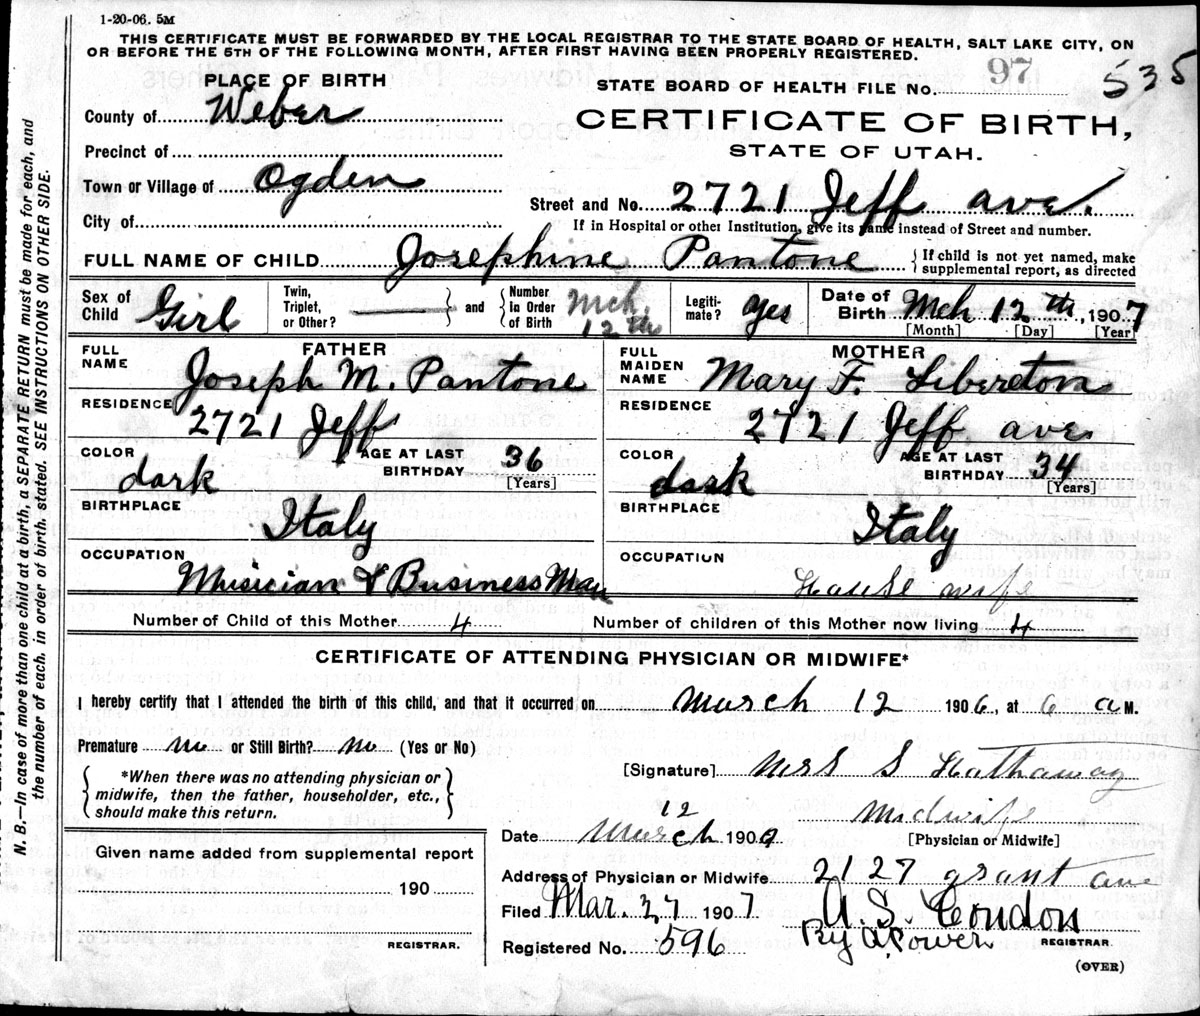 1-20-06. 5M
THIS CERTIFICATE MUST BE FORWARDED BY THE LOCAL REGISTRAR TO THE STATE BOARD OF HEALTH, SALT LAKE CITY, ON
OR BEFORE THE 5TH OF THE FOLLOWING MONTH, AFTER FIRST HAVING BEEN PROPERLY REGISTERED.
PLACE OF BIRTH
STATE BOARD OF HEALTH FILE No. 97 535
County of Weber
CERTIFICATE OF BIRTH,
Precinct of
STATE OF UTAH.
Town or Village of Ogden
Street and No. 2721 Jeff ave.
City of
If in Hospital or other Institution, give its name instead of Street and number.
FULL NAME OF CHILD Josephine Pantone
If child is not yet named, make
supplemental report, as directed
Sex of Child Girl
Twin, Triplet, or Other?
and Number in Order of Birth Mch. 12th
Legiti-mate? yes
Date of Birth Mch 12th, 1907
[Month] [Day] [Year]
FATHER
FULL NAME Joseph M. Pantone
RESIDENCE 2721 Jeff
COLOR dark
AGE AT LAST BIRTHDAY 36 [Years]
BIRTHPLACE Italy
OCCUPATION Musician & Business Man
MOTHER
FULL MAIDEN NAME Mary F. Libereton
RESIDENCE 2721 Jeff ave
COLOR dark
AGE AT LAST BIRTHDAY 34 [Years]
BIRTHPLACE Italy
OCCUPATION House wife
Number of Child of this Mother 4
Number of children of this Mother now living 4
CERTIFICATE OF ATTENDING PHYSICIAN OR MIDWIFE*
I hereby certify that I attended the birth of this child, and that it occurred on march 12 1906, at 6 a M.
Premature no or Still Birth? no (Yes or No)
*When there was no attending physician or
midwife, then the father, householder, etc.,
should make this return.
[Signature] Mrs S Hathaway
midwife
[Physician or Midwife]
Date March 12 190
Address of Physician or Midwife 2127 grant ave
Filed Mar. 27 1907
A. S. Condon
By A. Power
REGISTRAR
Registered No. 596
(OVER)
Given name added from supplemental report
190
REGISTRAR.
N. B.—In case of more than one child at a birth, a SEPARATE RETURN must be made for each, and
the number of each, in order of birth, stated. SEE INSTRUCTIONS ON OTHER SIDE.